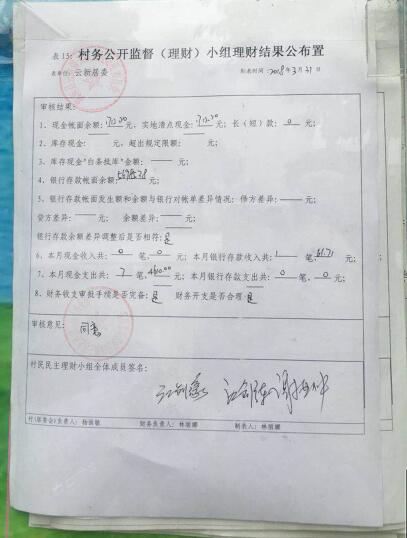 表15: 村务公开监督（理财）小组理财结果公布置
表单位: 云新居委 制表时间: 2018年3月31
审核结果:
1、现金帐面余额: 元, 实地清点现金: 元; 长（短）款: 0 元;
2、库存现金: 元, 超出规定限额: 元;
3、库存现金"白条抵库"金额: 元;
4、银行存款帐面余额: 元;
5、银行存款帐面发生额和余额与银行对帐单差异情况: 借方差异: 元;
贷方差异: 元; 余额差异: 元;
银行存款余额差异调整后是否相符: 是
6、本月现金收入共: 0 笔, 0 元; 本月银行存款收入共: 1 笔, 61.71 元;
7、本月现金支出共: 2 笔, 元; 本月银行存款支出共: 0 笔, 0 元;
8、财务收支审批手续是否完备: 是 财务开支是否合理: 是
审核意见: 同意
村民民主理财小组全体成员签名:
村(居委会)负责人: 杨丽敏 财务负责人: 林丽娜 制表人: 林丽娜